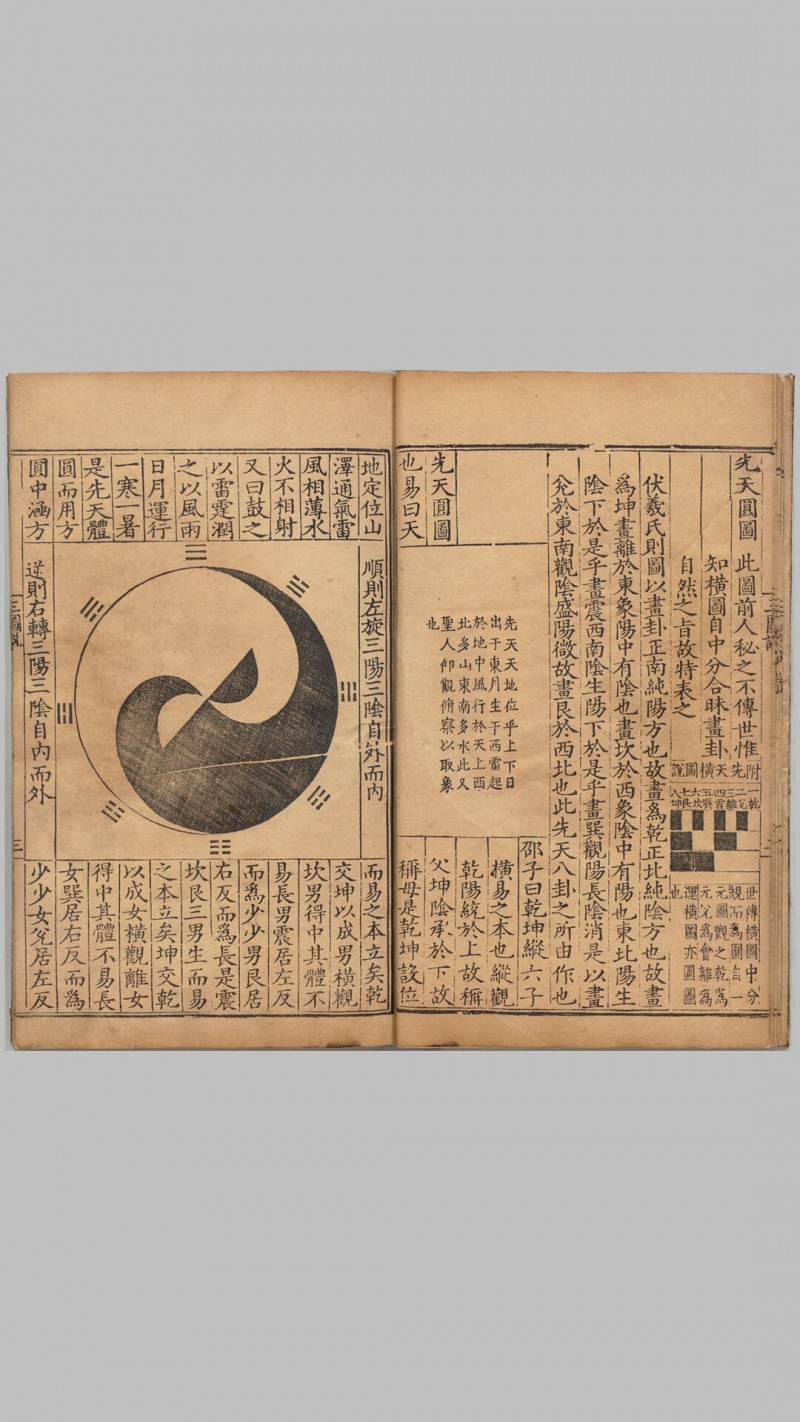 先天圓圖
此圖前人秘之不傳世惟
知橫圖自中分合昧畫卦
自然之旨故特表之
附先天橫圖說
一乾
二兌
三離
四震
五巽
六坎
七艮
八坤
世傳橫圖中分
觀而爲圓一
元圖觀之乾爲
元兌爲會離爲
運橫圖亦圓圖
也
伏羲氏則圖以畫卦正南純陽方也故畫爲乾正北純陰方也故畫
爲坤畫離於東象陽中有陰也畫坎於西象陰中有陽也東北陽生
陰下於是乎畫震西南陰生陽下於是乎畫巽觀陽長陰消是以畫
兌於東南觀陰盛陽微故畫艮於西北也此先天八卦之所由作也
先天圓圖
也易曰天
先天天地位乎上下日
出于東月生于西雷起
於地中風行於天上西
北多山東南多水此又
聖人仰觀俯察以取象
也
邵子曰乾坤縱六子
橫易之本也縱觀
乾陽統於上故稱
父坤陰承於下故
稱母是乾坤設位
地定位山
澤通氣雷
風相薄水
火不相射
又曰鼓之
以雷霆潤
之以風雨
日月運行
一寒一暑
是先天體
圓而用方
圓中涵方
順則左旋三陽三陰自外而內
逆則右轉三陽三陰自內而外
而易之本立矣乾
交坤以成男橫觀
坎男得中其體不
易長男震居左反
而爲少少男艮居
右反而爲長是震
坎艮三男生而易
之本立矣坤交乾
以成女橫觀離女
得中其體不易長
女巽居右反而爲
少少女兌居左反
三